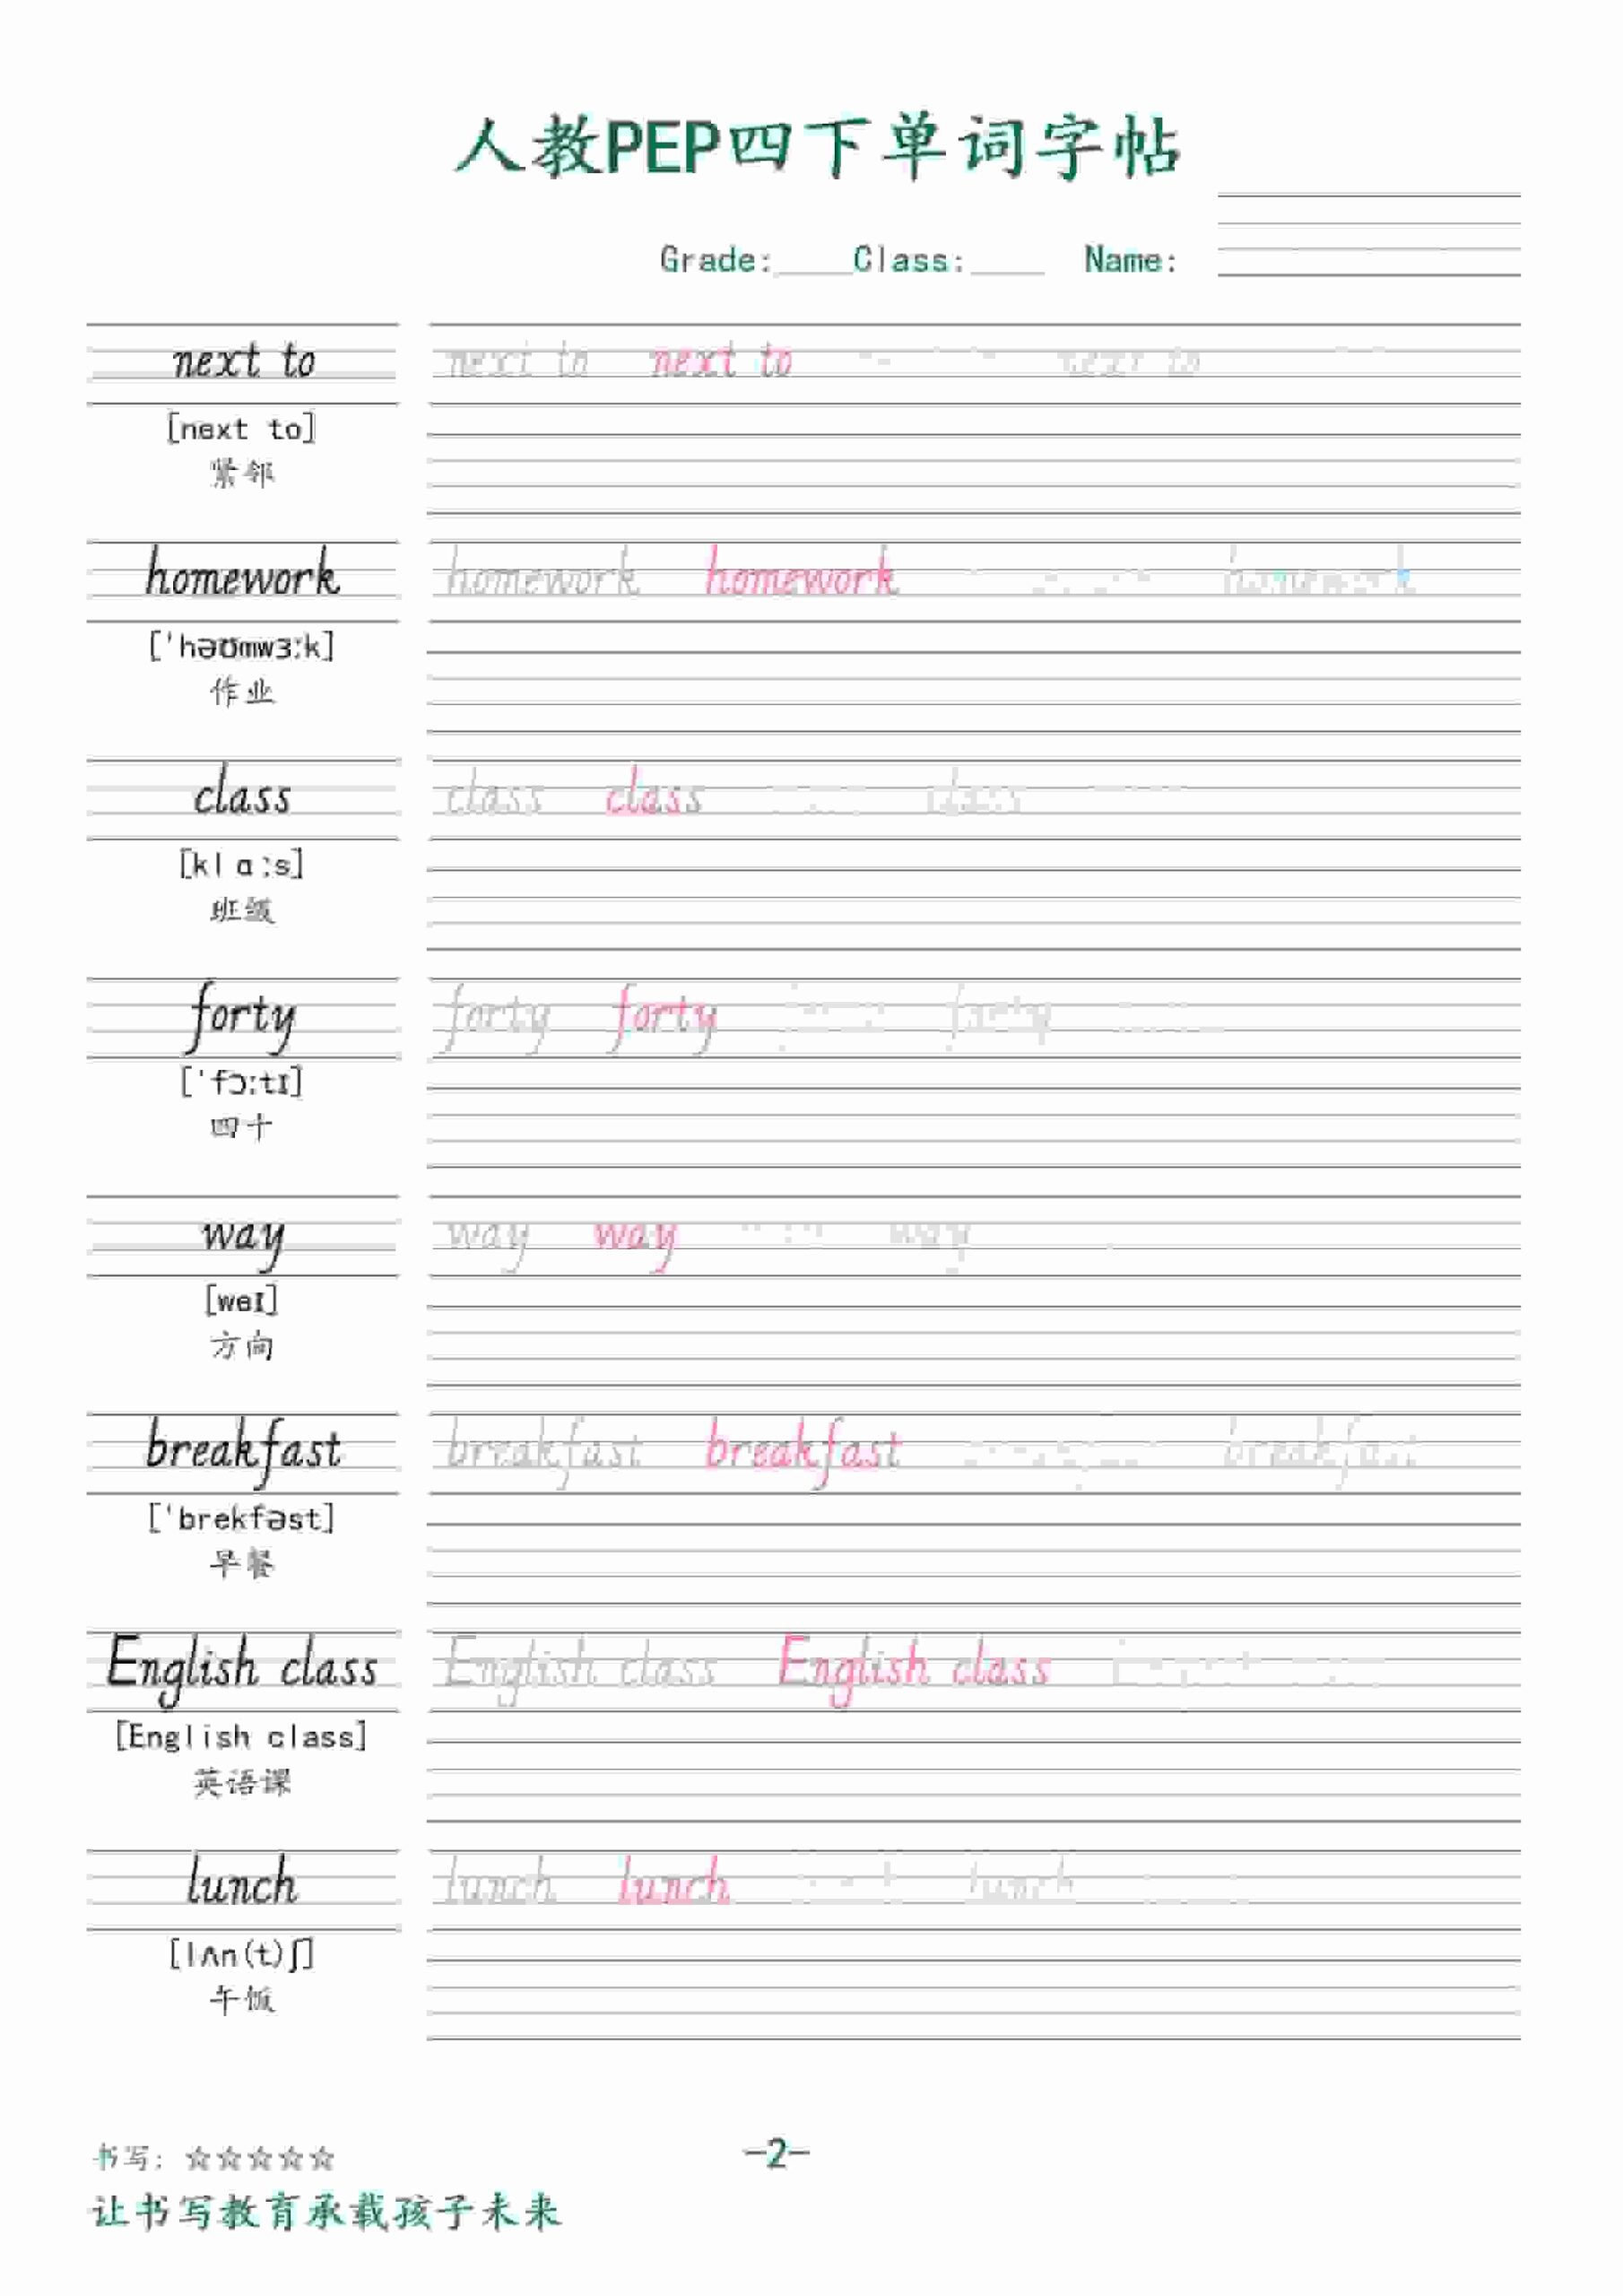 人教PEP四下单词字帖
Grade:____Class:____ Name:
next to next to next to next to
[next to]
紧邻
homework homework homework homework
['həʊmwɜːk]
作业
class class class class
[klɑːs]
班级
forty forty forty forty
['fɔːtɪ]
四十
way way way way
[weɪ]
方向
breakfast breakfast breakfast breakfast
['brekfəst]
早餐
English class English class English class
[English class]
英语课
lunch lunch lunch lunch
[lʌn(t)ʃ]
午饭
书写: ☆☆☆☆☆
-2-
让书写教育承载孩子未来